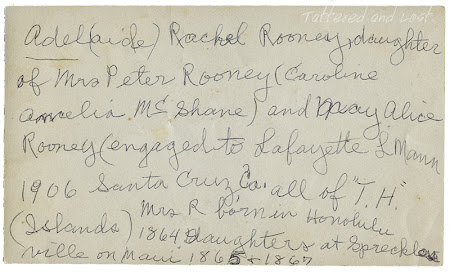 Tattered and Lost
Adel(aide) Rachel Rooney, daughter
of Mrs Peter Rooney (Caroline
Amelia McShane) and May Alice
Rooney (engaged to Lafayette L Mann
1906 Santa Cruz Co. all of "T.H."
(Islands) Mrs R born in Honolulu
1864 daughters at Spreckles
ville on Maui 1865 + 1867